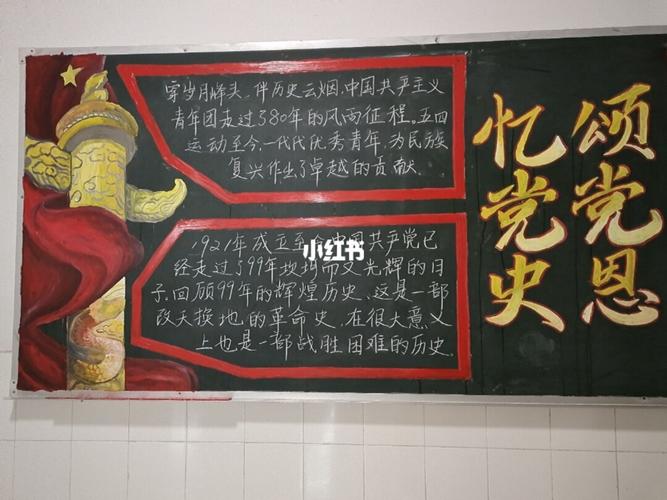 穿岁月峰头,伴历史云烟,中国共产主义
青年团走过了80年的风雨征程。五四
运动至今,一代代优秀青年,为民族
复兴作出了卓越的贡献.
1921年成立至今中国共产党已
经走过了99年坎坷而又光辉的日
子.回顾99年的辉煌历史,这是一部
改天换地的革命史,在很大意义
上也是一部战胜困难的历史.
小红书
颂党恩
忆党史